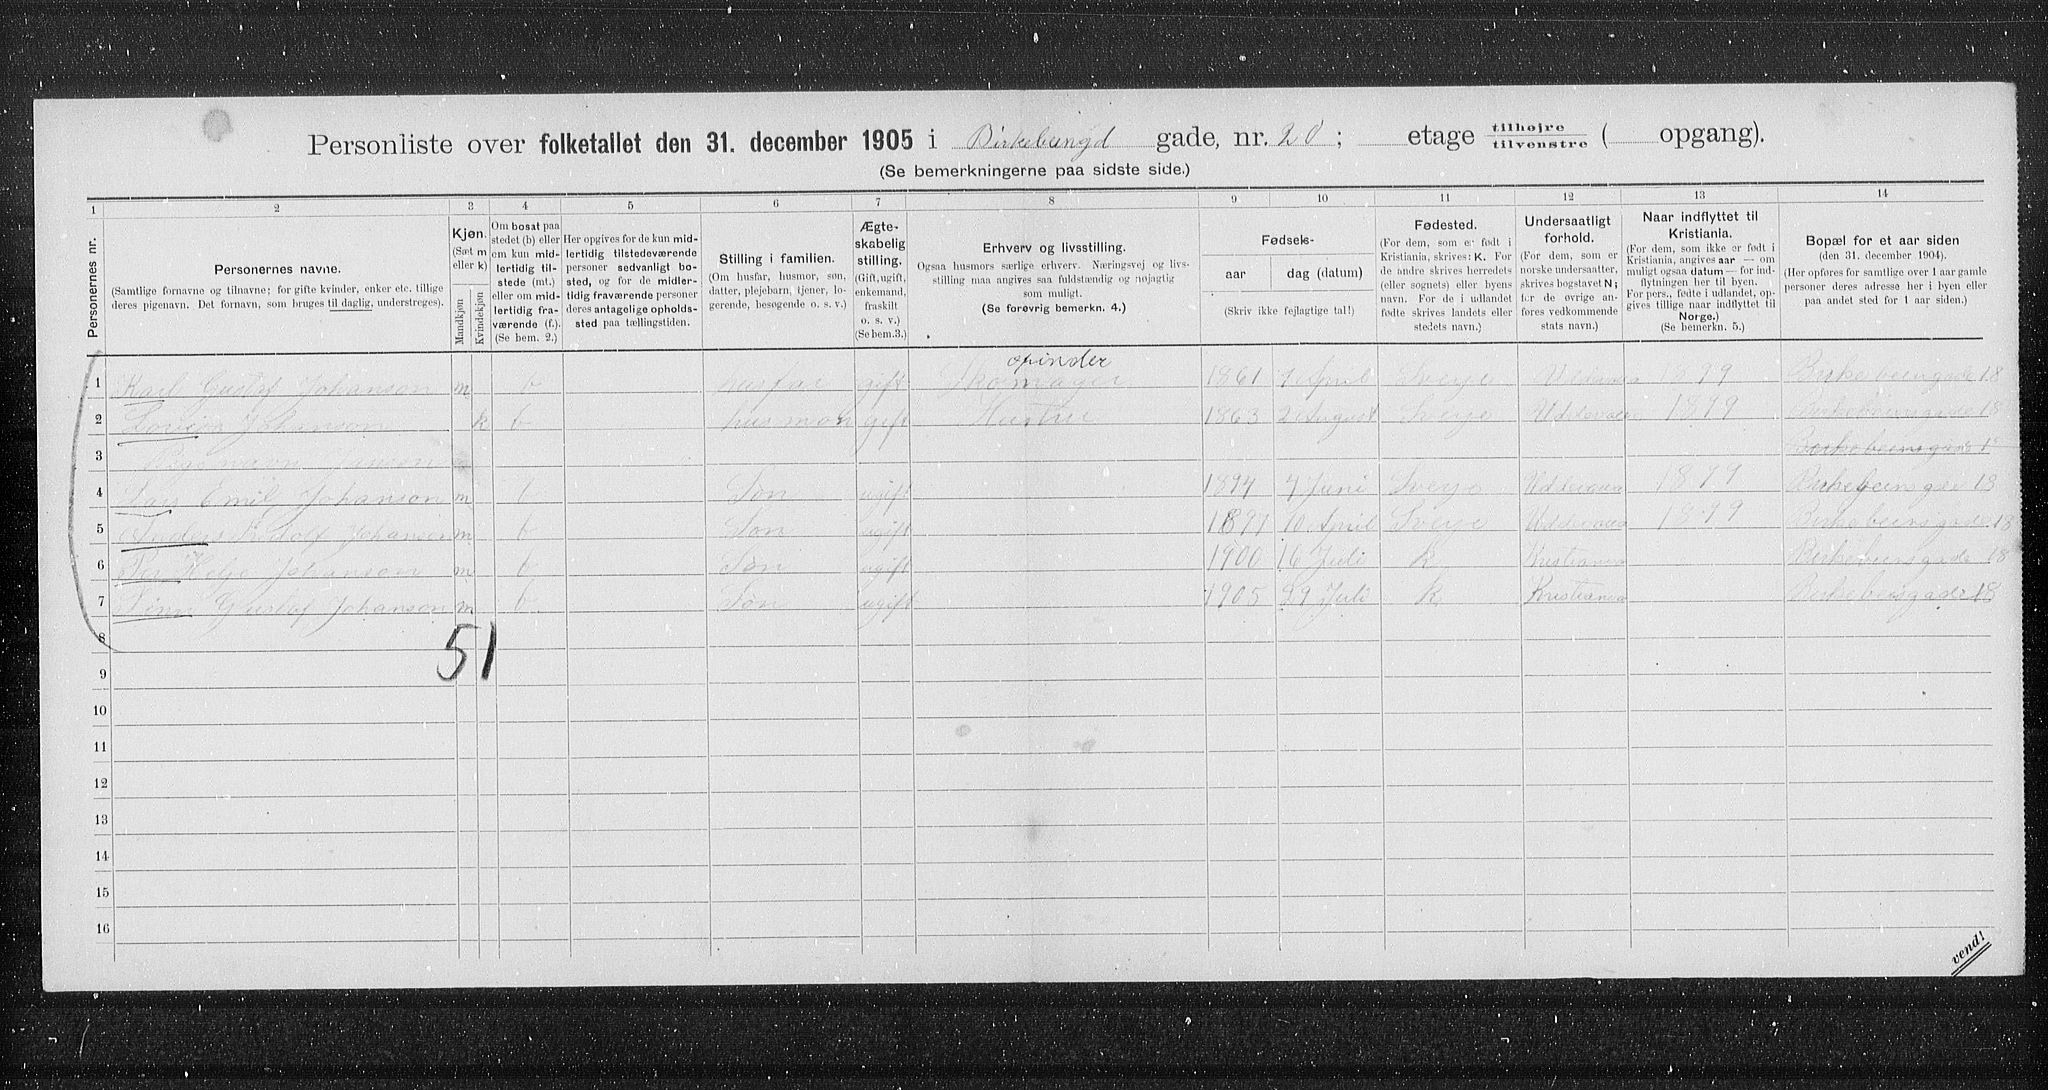 Personliste over folketallet den 31. december 1905 i Birkebungd gade, nr. 20; etage tilhøjre / tilvenstre ( opgang).
(Se bemerkningerne paa sidste side.)
1 2 3 4 5 6 7 8 9 10 11 12 13 14
Personernes nr.
Personernes navne.
(Samtlige fornavne og tilnavne; for gifte kvinder, enker etc. tillige
deres pigenavn. Det fornavn, som bruges til daglig, understreges).
Kjøn.
(Sæt m
eller k)
Mandkjøn
Kvindekjøn
Om bosat paa
stedet (b) eller
om kun mid-
lertidig til-
stede (mt.)
eller om mid-
lertidig fra-
værende (f.).
(Se bem. 2.)
Her opgives for de kun mid-
lertidig tilstedeværende
personer sedvanligt bo-
sted, og for de midler-
tidig fraværende personer
deres antagelige opholds-
sted paa tællingstiden.
Stilling i familien.
(Om husfar, husmor, søn,
datter, plejebarn, tjener, lo-
gerende, besøgende o. s. v.)
Ægte-
skabelig
stilling.
(Gift, ugift,
enkemand,
fraskilt
o. s. v.)
(Se bem. 3.)
Erhverv og livsstilling.
Ogsaa husmors særlige erhverv. Næringsvej og livs-
stilling maa angives saa fuldstændig og nøjagtig
som muligt.
(Se forøvrig bemerkn. 4.)
Fødsels-
aar
dag (datum)
(Skriv ikke fejlagtige tal!)
Fødested.
(For dem, som er født i
Kristiania, skrives: K. For
de andre skrives herredets
(eller sognets) eller byens
navn. For de i udlandet
fødte skrives landets eller
stedets navn.)
Undersaatligt
forhold.
(For dem, som er
norske undersaatter,
skrives bogstavet N;
for de øvrige an-
føres vedkommende
stats navn.)
Naar indflyttet til
Kristiania.
(For dem, som ikke er født i
Kristiania, angives aar — om
muligt ogsaa datum — for ind-
flytningen her til byen.
For pers., fødte i udlandet, op-
gives tillige naar indflyttet til
Norge.)
(Se bemerkn. 5.)
Bopæl for et aar siden
(den 31. december 1904).
(Her opføres for samtlige over 1 aar gamle
personer deres adresse her i byen eller
paa andet sted for 1 aar siden.)
opinder
1 Karl Gustaf Johanson m b husfar gift Skomager 1861 April Sverje 1899 Birkebeingade 18
2 Lovisa Johanson k b husmor gift Hustru 1863 2 August Sverje Uddevala 1899 Birkebeinsgade 18
3 Pigenavn Birkebeinsgade 1
4 Lars Emil Johanson m b Søn ugift 1894 4 Juni Sverje Uddevala 1899 Birkebeinsgade 18
5 Johanson m b Søn ugift 1897 10 April Sverje Uddevala 1899 Birkebeinsgade 18
6 Per Helje Johanson m b Søn ugift 1900 16 Juli K Kristiania Birkebeinsgade 18
7 Gustaf Johanson m b Søn ugift 1905 29 Juli K Kristiania Birkebeinsgade 18
8
51
9
10
11
12
13
14
15
16
vend!